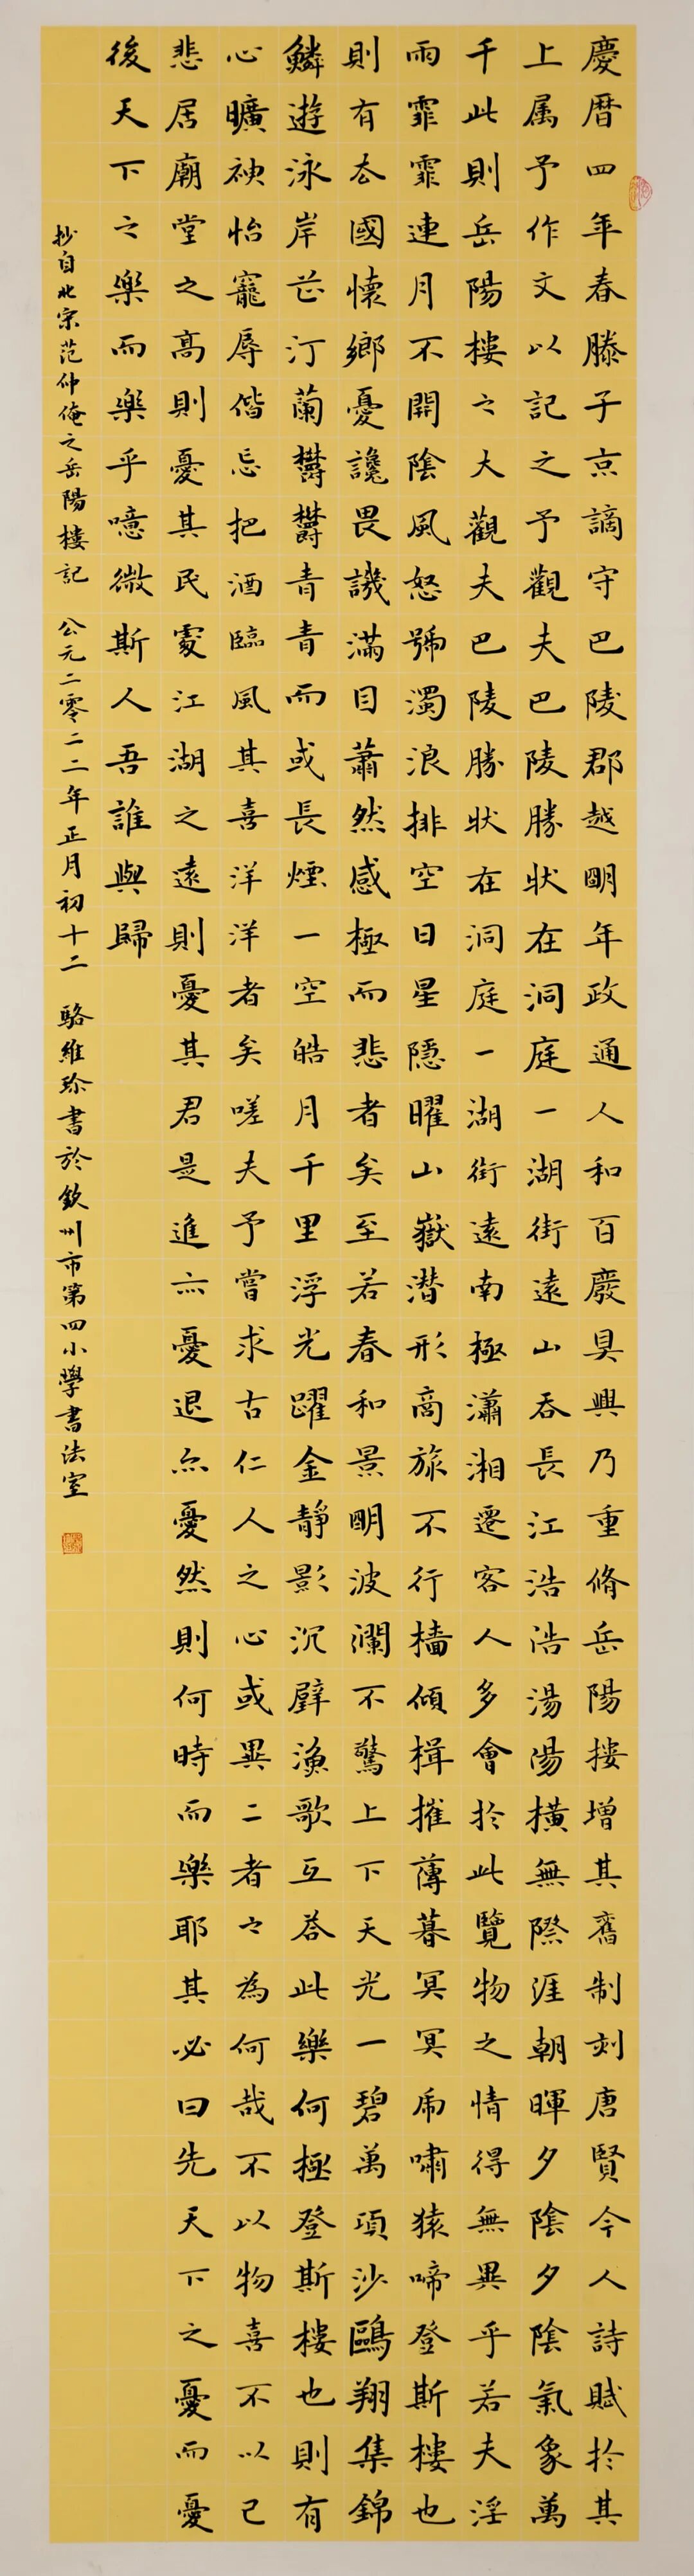 慶暦四年春滕子京謫守巴陵郡越明年政通人和百廢具興乃重脩岳陽樓增其舊制刻唐賢今人詩賦於其
上属予作文以記之予觀夫巴陵勝狀在洞庭一湖銜遠山吞長江浩浩湯湯橫無際涯朝暉夕陰夕陰氣象萬
千此則岳陽樓之大觀夫巴陵勝狀在洞庭一湖銜遠南極瀟湘遷客人多會於此覽物之情得無異乎若夫淫
雨霏霏連月不開陰風怒號濁浪排空日星隱曜山嶽潛形商旅不行檣傾楫摧薄暮冥冥虎嘯猿啼登斯樓也
則有去國懷鄉憂讒畏譏滿目蕭然感極而悲者矣至若春和景明波瀾不驚上下天光一碧萬頃沙鷗翔集錦
鱗遊泳岸芷汀蘭鬱鬱青青而或長煙一空皓月千里浮光躍金靜影沉璧漁歌互答此樂何極登斯樓也則有
心曠神怡寵辱偕忘把酒臨風其喜洋洋者矣嗟夫予嘗求古仁人之心或異二者之為何哉不以物喜不以己
悲居廟堂之高則憂其民處江湖之遠則憂其君是進亦憂退亦憂然則何時而樂耶其必曰先天下之憂而憂
後天下之樂而樂乎噫微斯人吾誰與歸
抄自北宗范仲俺之岳陽樓記 公元二零二二年正月初十二 駱維珍書於欽州市第四小學書法室